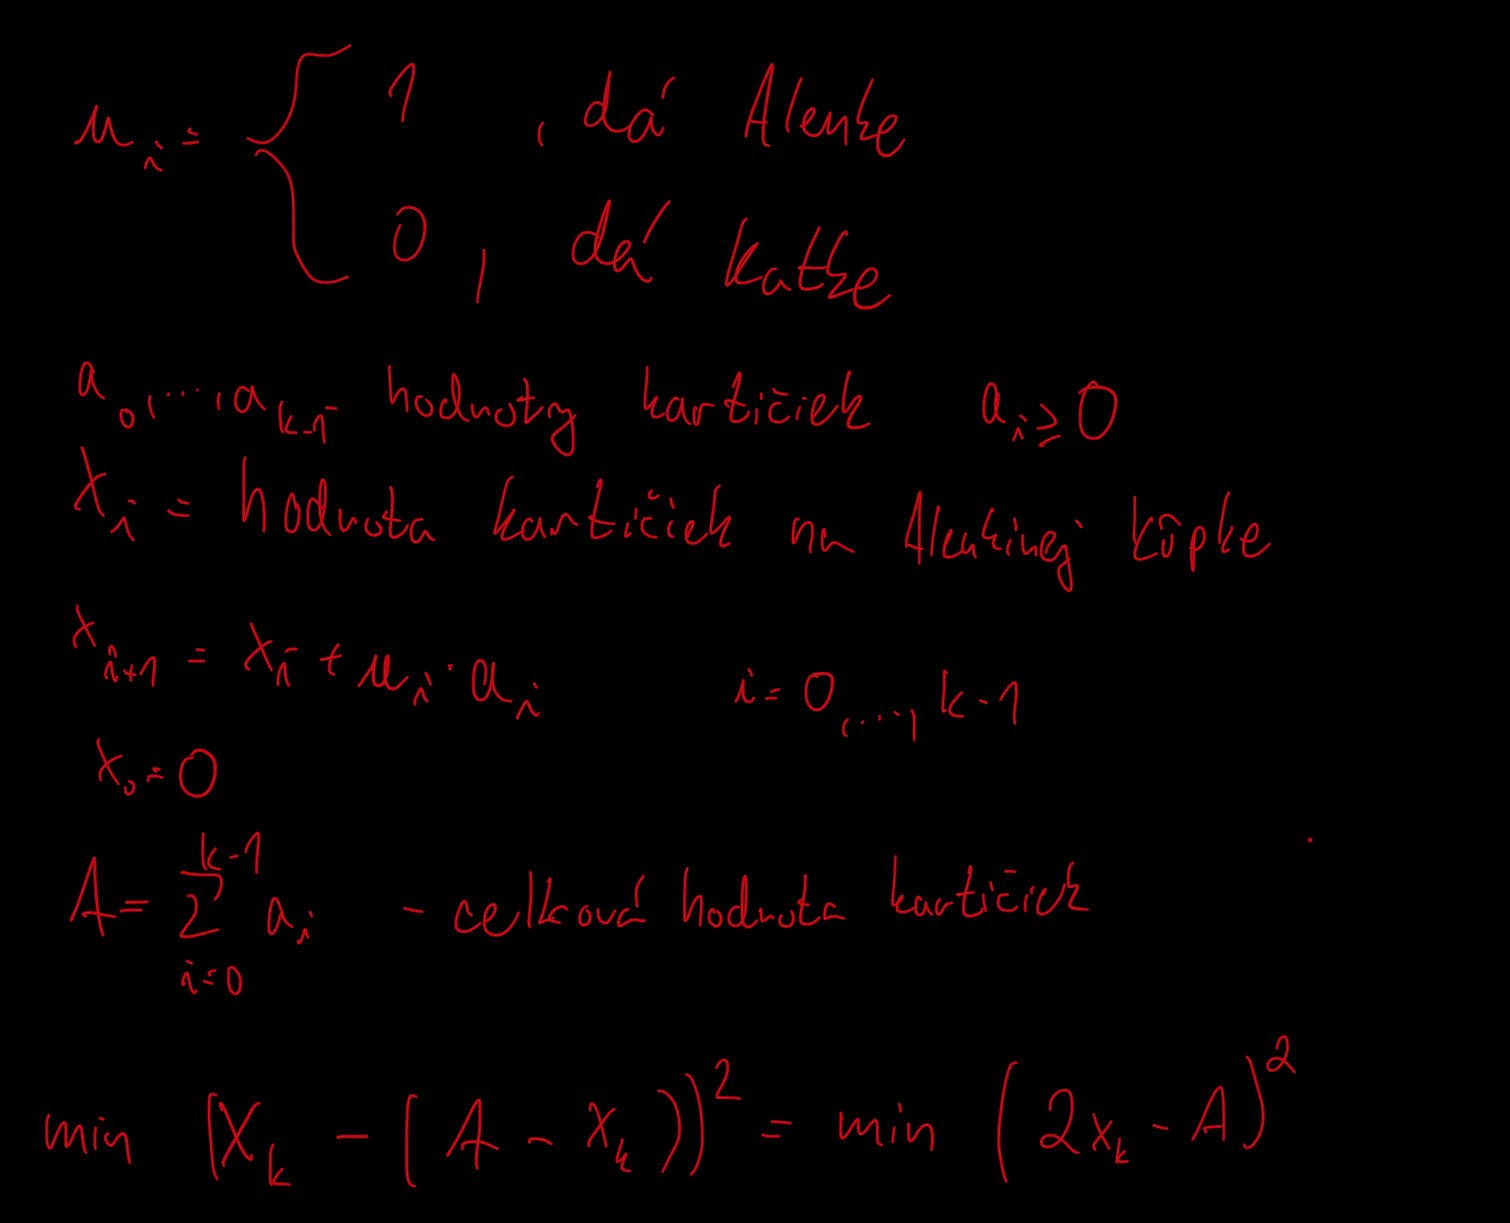 u_i = { 1 , dá Alenke
0 , dá Katke
a_0, ..., a_{k-1} hodnoty kartičiek a_i ≥ 0
X_i = hodnota kartičiek na Alenkinej kôpke
x_{i+1} = x_i + u_i · a_i i = 0, ..., k-1
x_0 = 0
A = ∑_{i=0}^{k-1} a_i - celková hodnota kartičiek
min (X_k - (A - x_k))^2 = min (2x_k - A)^2